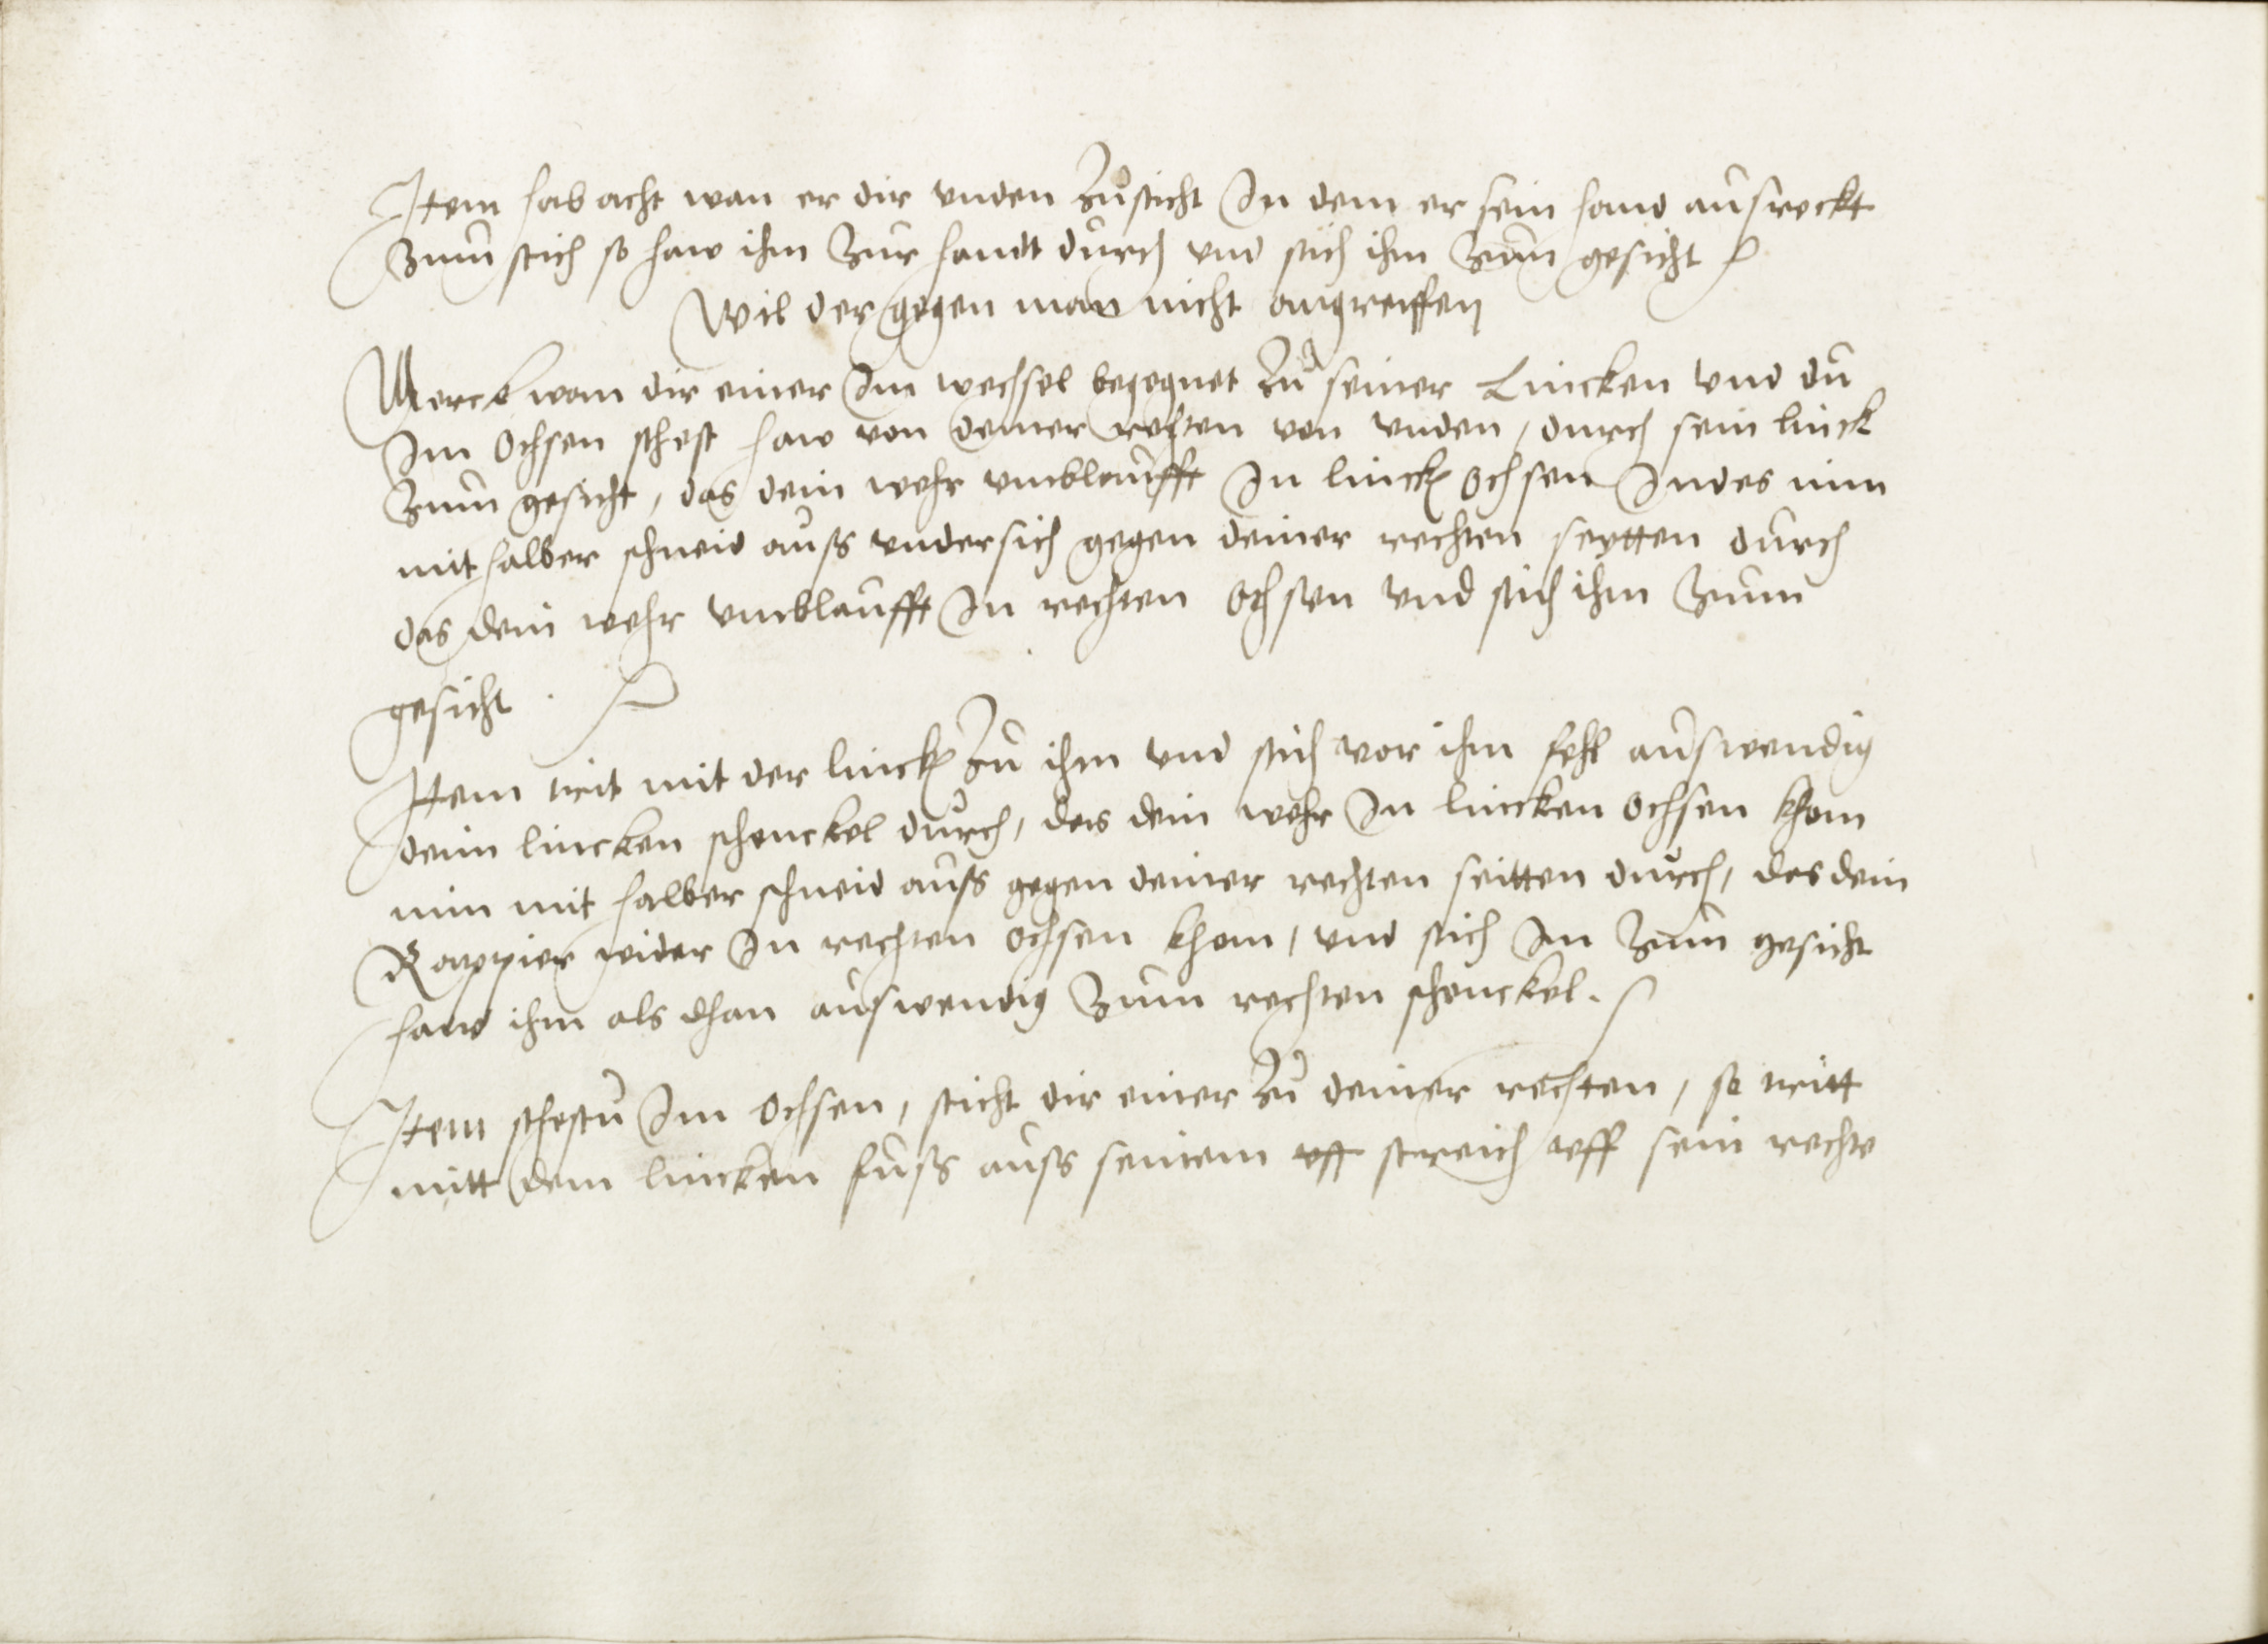 Item hab acht wan er dir unden zusticht In dem er sein hand ausreckt
zum stich so haw ihm zur handt durch und stich ihm zum gesicht
Wil der gegen man nicht angreiffen
Merck wan dir einer Im wechsel begegnet zu seiner Lincken und du
Im Ochsen sthest haw von deiner rechten von unden, durch sein linck
zum gesicht, das dein wehr umblaufft In linck ochsen Indes nim
mit halber schneid auss undersich gegen deiner rechten seytten durch
das dein wehr umblaufft In rechten ochsen und stich ihm zum
gesicht.
Item trit mit der linck zu ihm und stich vor ihm fehl auswendig
deim lincken schenckel durch, das dein wehr In lincken ochsen khom
nim mit halber schneid auss gegen deiner rechten seitten durch, das dein
Rappier wider In rechten ochsen khom, und stich Im zum gesicht
haw ihm als dhan auswendig zum rechten schenckel.
Item sthestu Im ochsen, sticht dir einer zu deiner rechten, so tritt
mitt dem lincken fuss auss seinem streich uff sein rechte